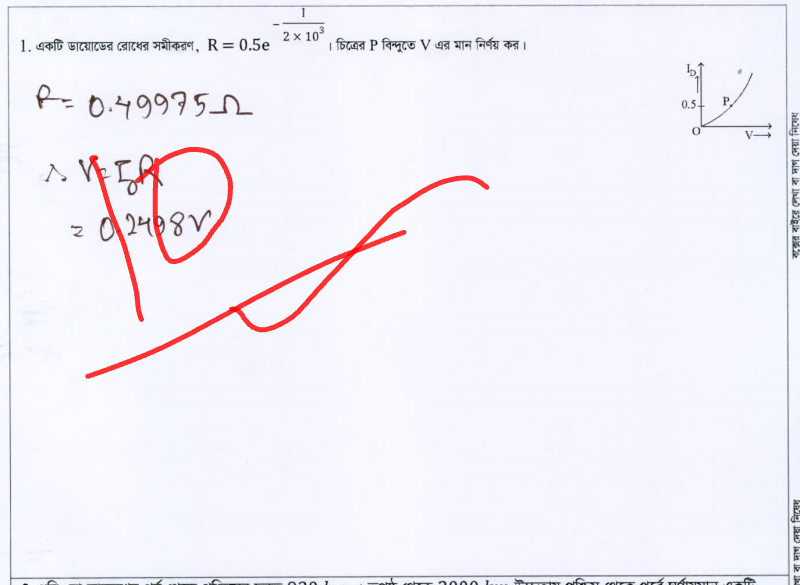 1. একটি ডায়োডের রোধের সমীকরণ, R = 0.5e^{-\frac{I}{2 × 10^3}} । চিত্রের P বিন্দুতে V এর মান নির্ণয় কর।
I_D
0.5 P
O V
R = 0.49975Ω
∴ V = I_D R
= 0.2498V
বক্সের বাইরে লেখা বা দাগ দেয়া নিষেধ
বা দাগ দেয়া নিষেধ